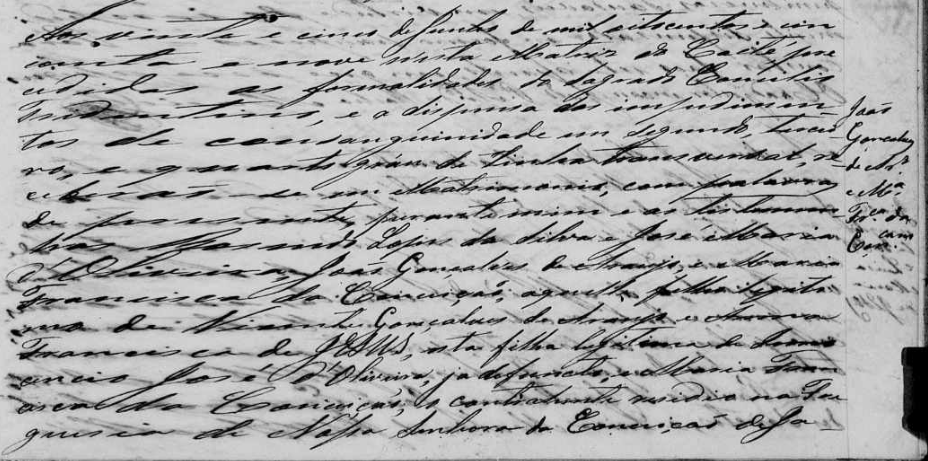 Aos vinte e cinco de Junho de mil oitocentos e cin
coenta e nove nesta Matriz do Coité, pre
cedidas as formalidades do Sagrado Concilio
Tridentino, e a dispensa dos impedimen
tos de consanguinidade em segundo, tercei
ro, e quarto gráu de linha transversal, re
ceberaõ-se em Matrimonio, com palavras
de presente, perante mim e as testemu
nhas Lopes da Silva e José Maria
d'Oliveira, Joaõ Gonçalves de Araujo, e Maria
Francisca da Conceiçaõ, aquelle filho legiti
mo de Vicente Gonçalves de Araujo e Anna
Francisca de JESUS, esta filha legitima de
ancio José d'Oliveira, ja defuncto, e Maria Fran
cisca da Conceiçaõ, o contrahente reside na Fre
guesia de Nossa Senhora da Conceiçaõ de Ja-
Joaõ
Gonçalves
de Ar.º
e M.ª
Fr.ca da
Con.